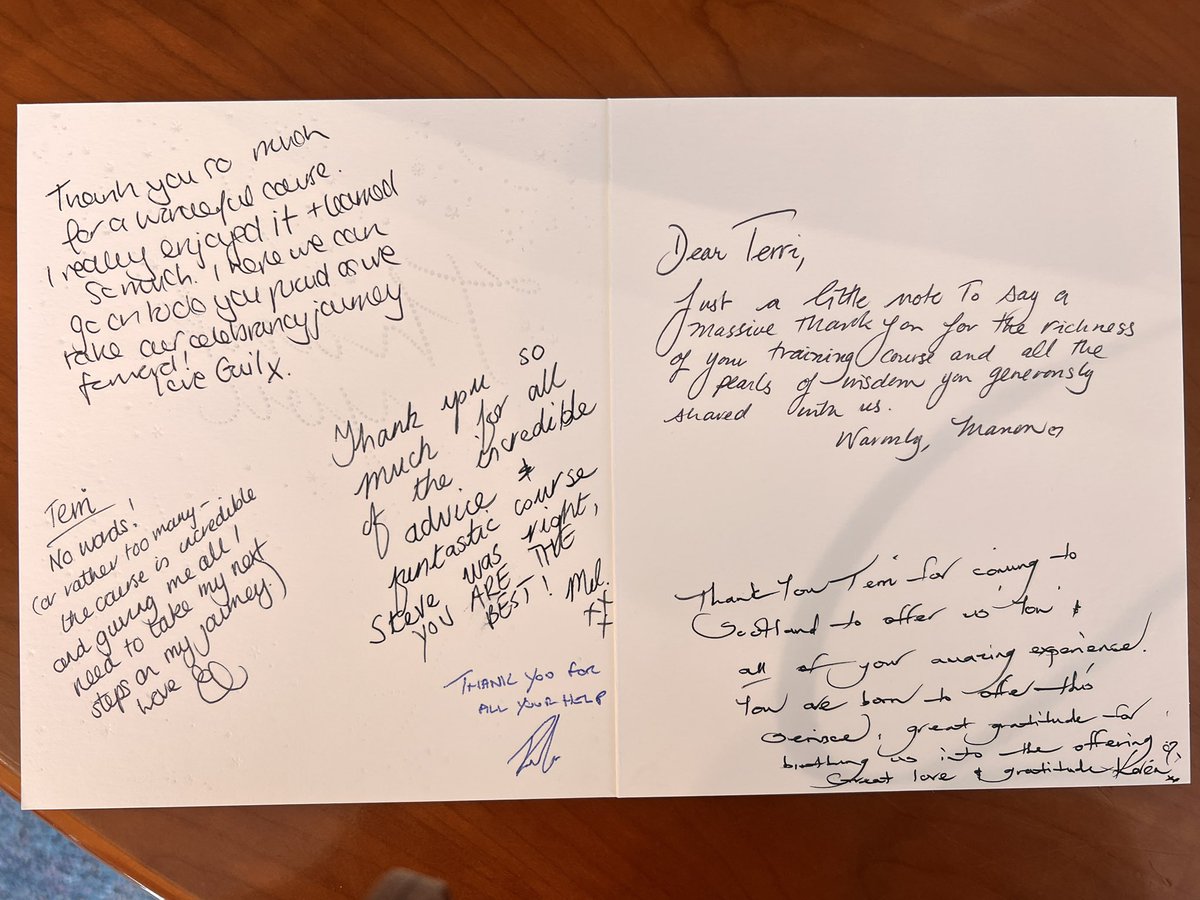 Thank you so much
for a wonderful course.
I really enjoyed it + learned
so much. I hope we can
go on to do you proud as we
take our celebrancy journey
forward!
love Gail x.
Terri
No words!
(or rather too many –
the course is incredible
and giving me all I
need to take my next
steps on my journey.)
Thank you so
much for all
of the incredible
advice &
funtastic course
Steve was right,
YOU ARE THE
BEST! Mel.
xx
THANK YOU FOR
ALL YOUR HELP
Dear Terri,
Just a little note to say a
massive thank you for the richness
of your training course and all the
pearls of wisdom you generously
shared with us.
Warmly, Manon
Thank You Terri for coming to
Scotland to offer us 'You' &
all of your amazing experience.
You are born to offer this
great gratitude for
birthing us into the offering
Great love & gratitude Karen